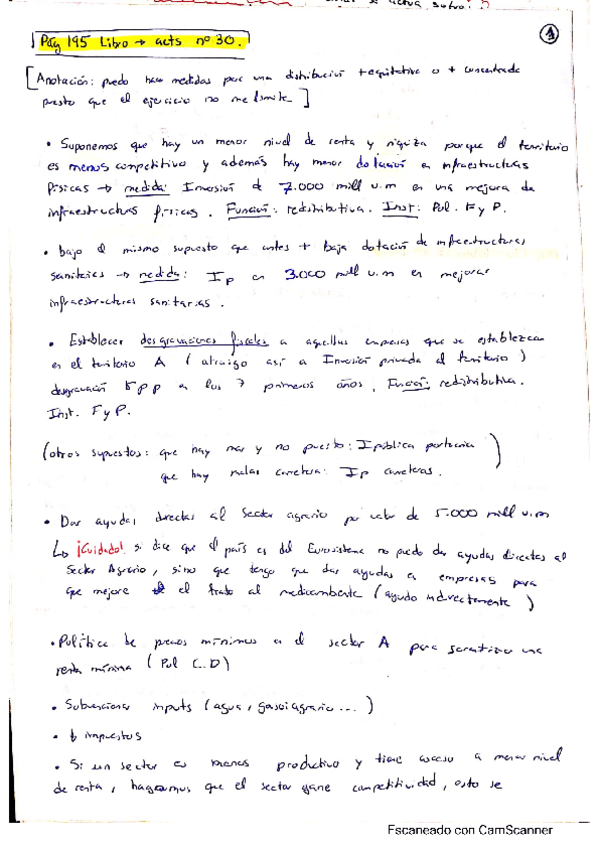 Pág 195 Libro → acts nº 30.
[Anotación: puedo hacer medidas para una distribución + equitativa o + concentrada
puesto que el ejercicio no me limita]
• Suponemos que hay un menor nivel de renta y riqueza porque el territorio
es menos competitivo y además hay menor dotación en infraestructuras
físicas → medida: Inversión de 7.000 mill u.m en una mejora de
infraestructuras físicas. Función: redistributiva. Inst: Pol. F y P.
• bajo el mismo supuesto que antes + baja dotación de infraestructuras
sanitarias → medida: Ip en 3.000 mill u.m en mejorar
infraestructuras sanitarias.
• Establecer desgravaciones fiscales a aquellas empresas que se establezcan
en el territorio A (atraigo así a Inversión privada al territorio)
desgravación 5 p p en los 7 primeros años. Función: redistributiva.
Inst. F y P.
(otros supuestos: que hay mar y no puerto: I pública portuaria
que hay malas carreteras: Ip carreteras.)
• Dar ayudas directas al sector agrario por valor de 5.000 mill u.m
↳ ¡Cuidado! si dice que el país es del Eurosistema no puedo dar ayudas directas al
Sector Agrario, sino que tengo que dar ayudas a empresas para
que mejore el trato al medioambiente (ayudo indirectamente)
• Política de precios mínimos en el sector A para garantizar una
renta mínima (Pol C.D)
• Subvencionar inputs (agua, gasoil agrario ...)
• ↓ impuestos
• Si un sector es menos productivo y tiene acceso a menor nivel
de renta, hagamos que el sector gane competitividad, esto se
Escaneado con CamScanner